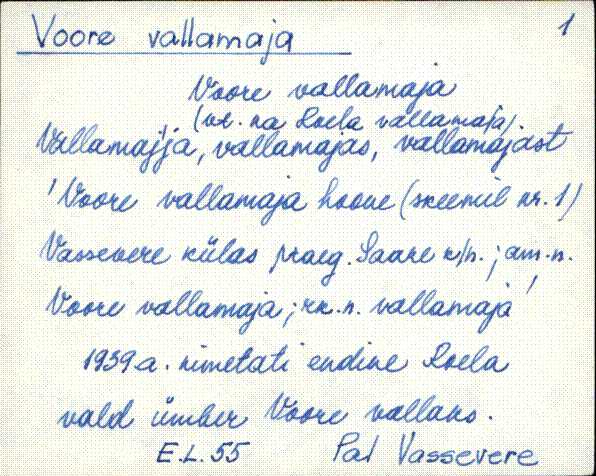 Voore vallamaja
1
Voore vallamaja
(vt. ka Roela vallamaja)
Vallamajja, vallamajas, vallamajast
'Voore vallamaja hoone (skeemil nr. 1)
Vassevere külas praeg. Saare k/n.; am.n.
Voore vallamaja; rk.n. vallamaja'
1939 a. nimetati endine Roela
vald ümber Voore vallaks.
E.L. 55 Pal Vassevere